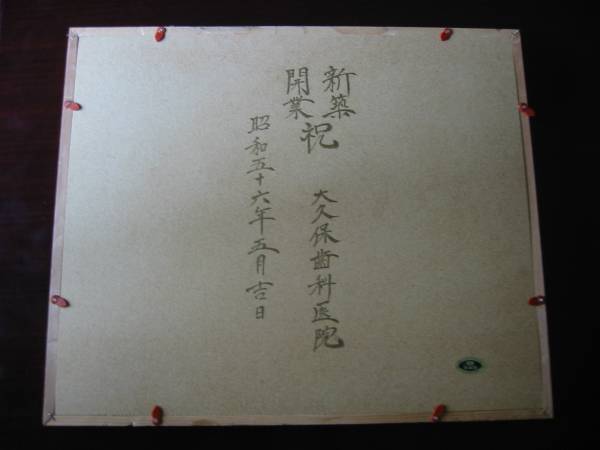 新築
開業
祝
大久保歯科医院
昭和五十六年五月吉日